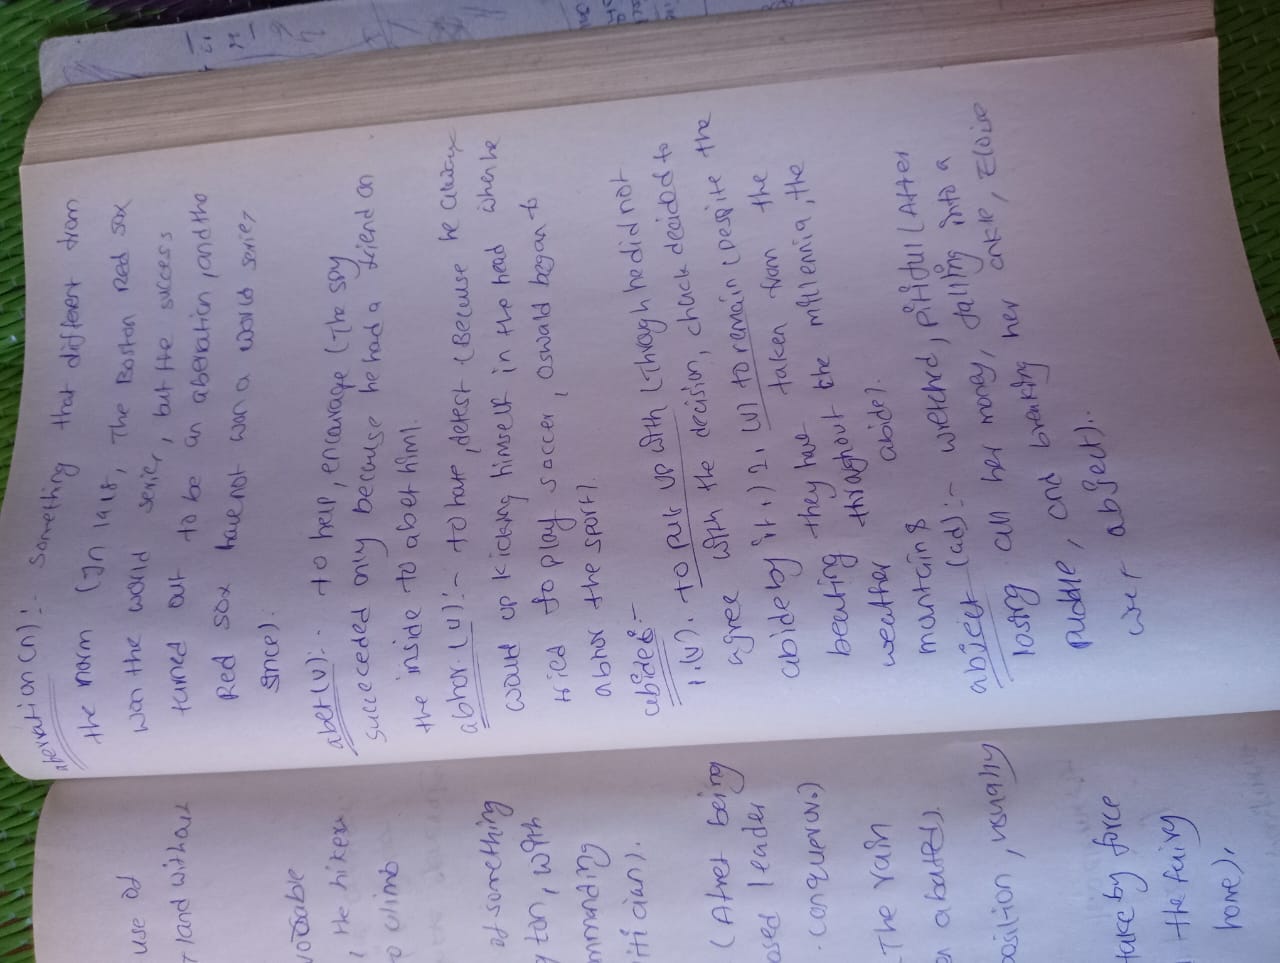 use of
land without
he hiker
o climb
of something
ton, with
mmanding
itician).
(After being
osed leader
conqueror.)
The rain
n abated).
position, usually
take by force
the fairy
home),
aberration (n):- something that different from
the norm (In 1918, The Boston Red Sox
won the world series, but the success
turned out to be an aberation, and the
Red Sox have not won a world series
since).
abet (v):- to help, encourage (The spy
succeeded only because he had a friend on
the inside to abet him).
abhor (v):- to hate, detest (Because he always
would up kicking himself in the head when he
tried to play soccer, oswald began to
abhor the sport).
abide:-
1.(v). to put up with (Though he did not
agree with the decision, chuck decided to
abide by it.) 2. (v) to remain (Despite the
beating they have taken from the
weather throughout the millennia, the
mountains abide).
abject (adj):- wretched, pitiful (After
losing all her money, falling into a
puddle, and breaking her ankle, Eloise
was abject).